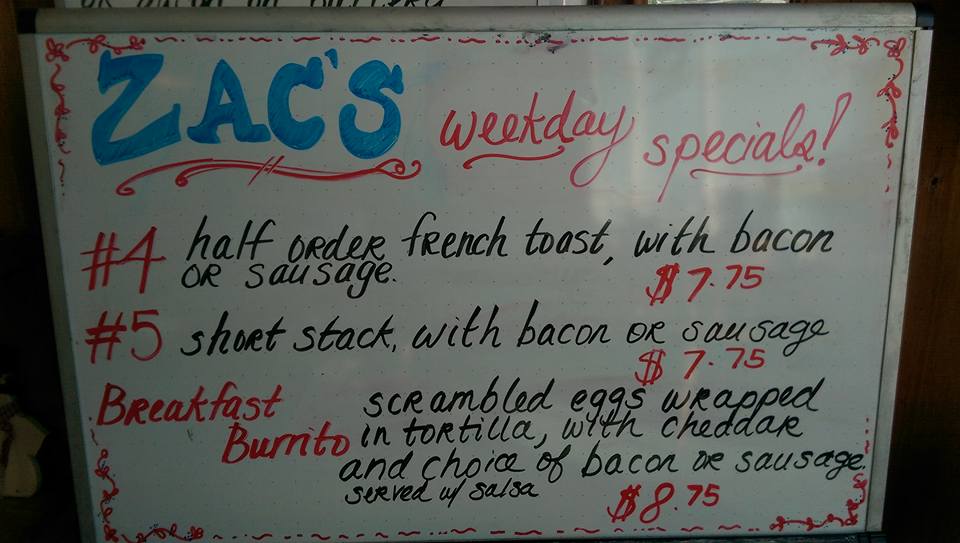 ZAC'S weekday specials!
#4 half order french toast, with bacon
or sausage.
$7.75
#5 short stack, with bacon or sausage
$7.75
Breakfast scrambled eggs wrapped
Burrito in tortilla, with cheddar
and choice of bacon or sausage.
served w/ salsa
$8.75